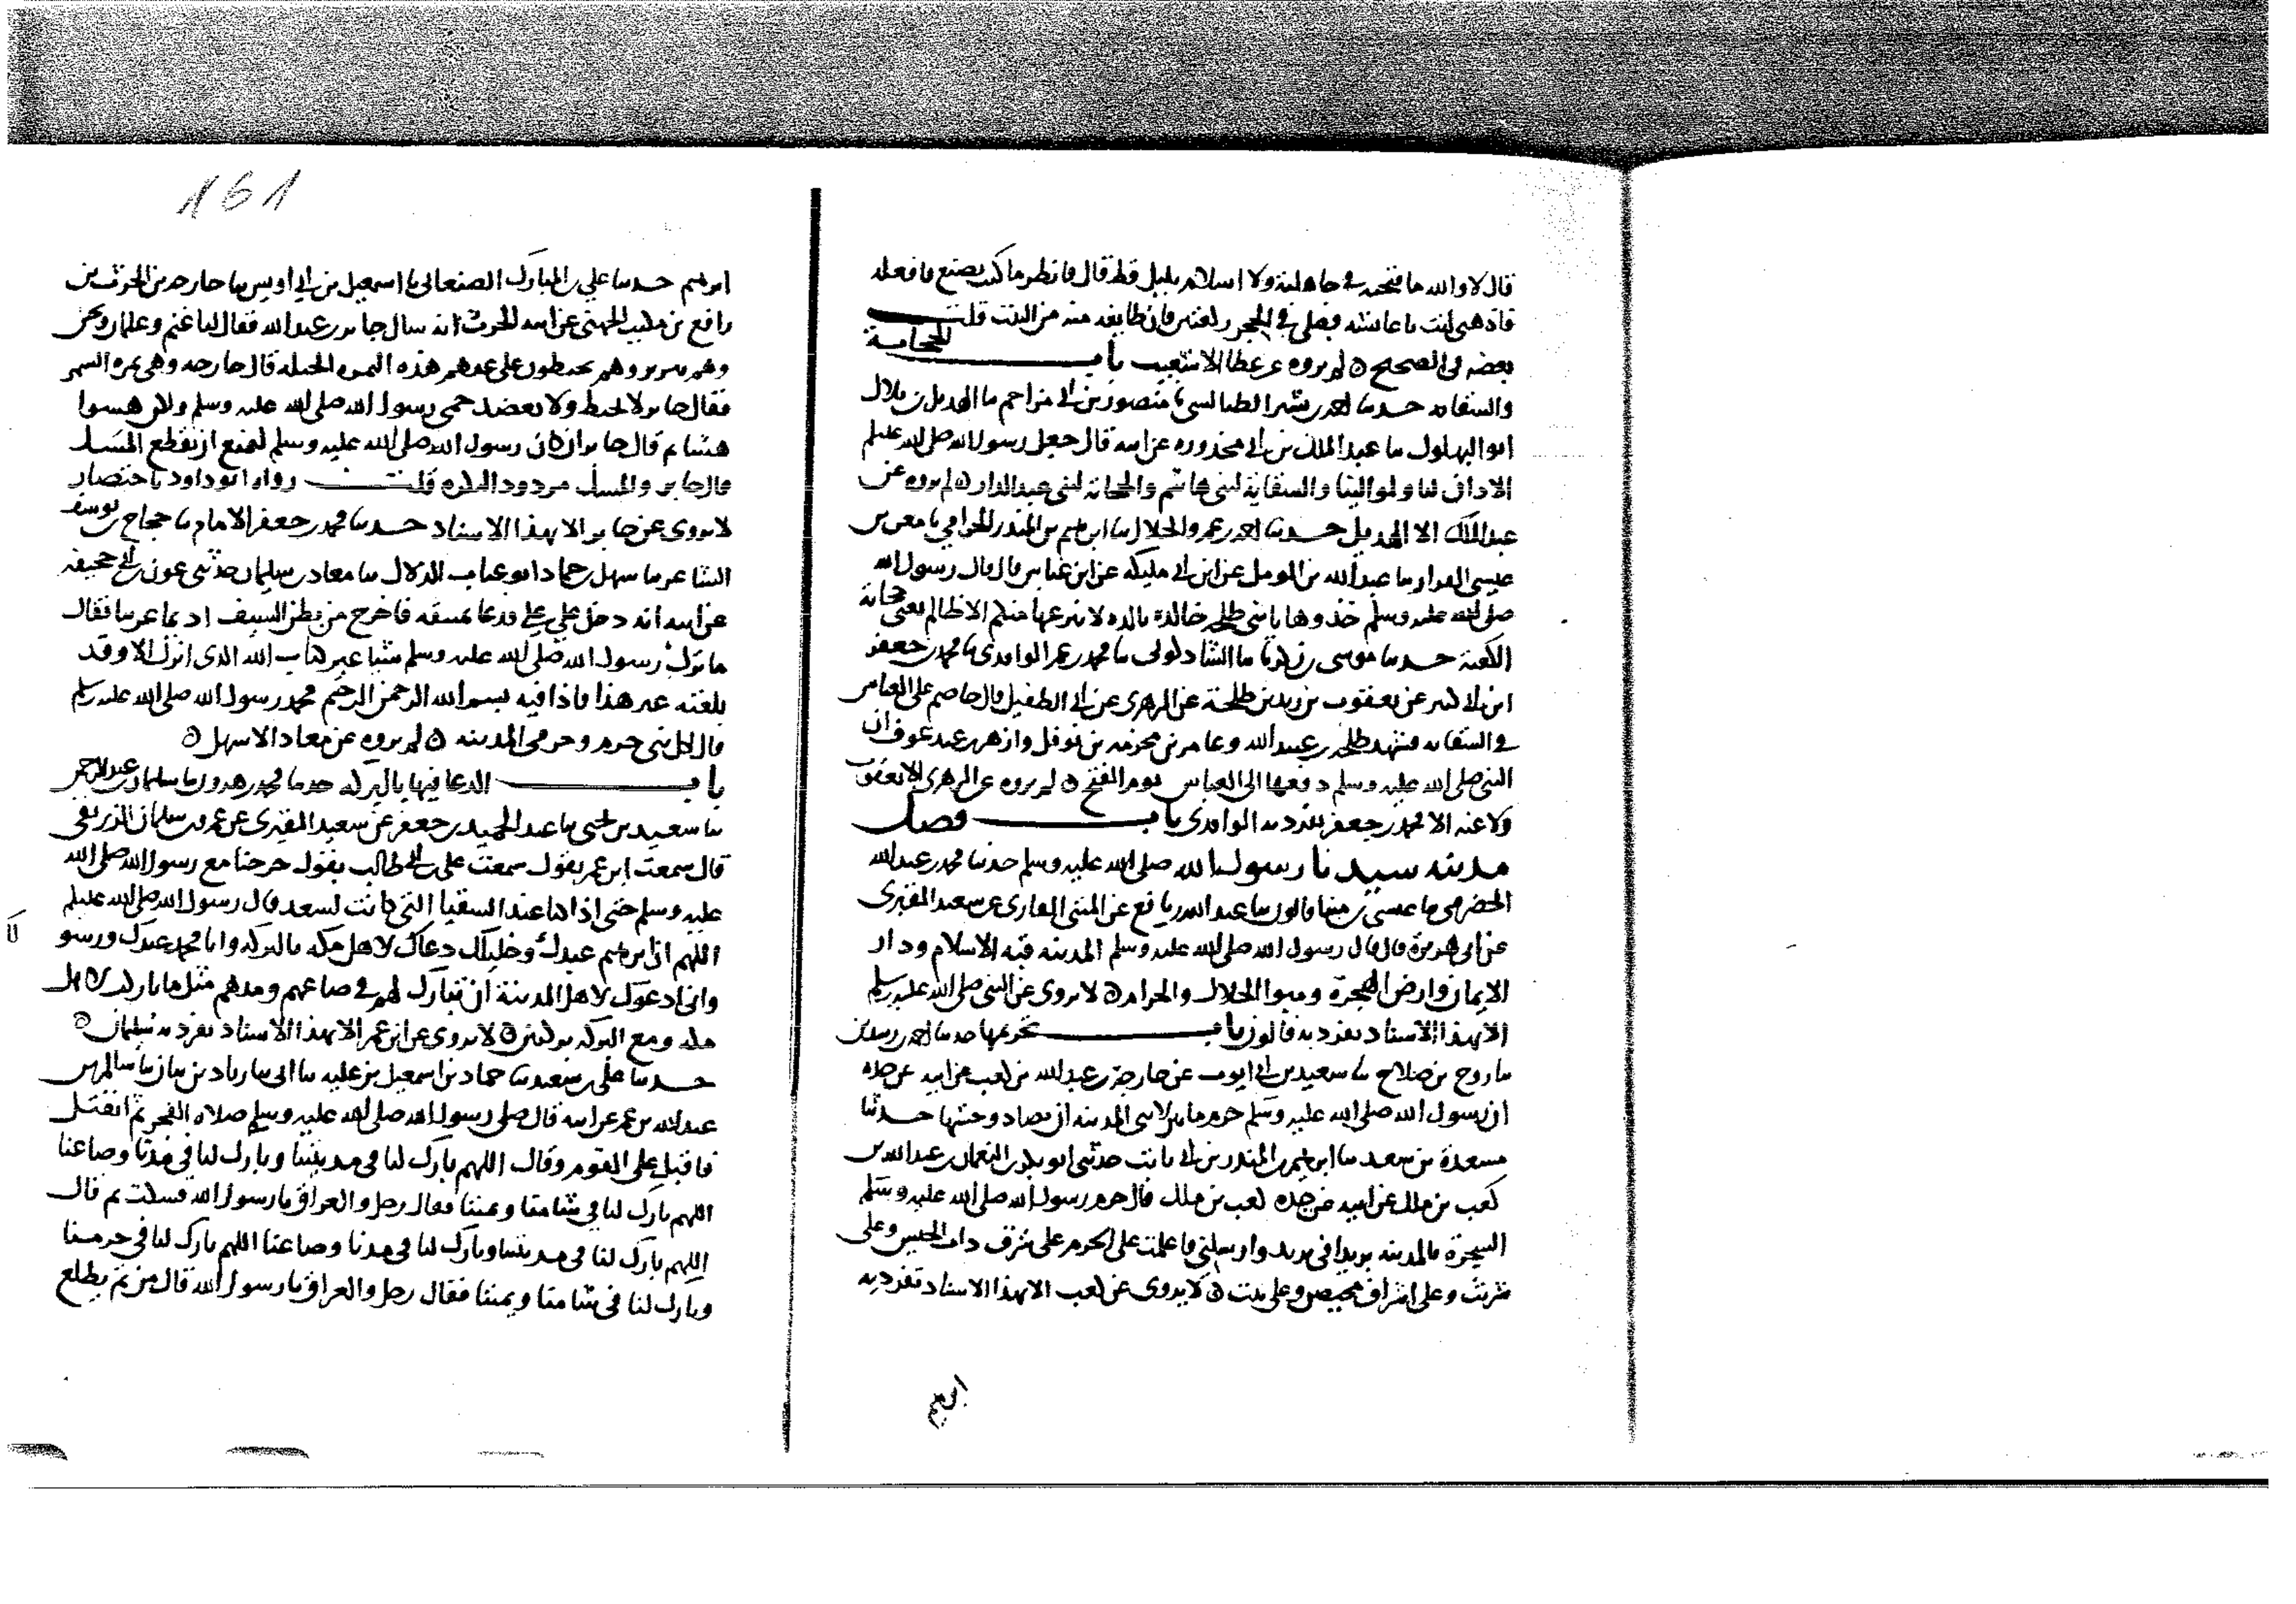 قال لا والله ما فتحته في جاهلية ولا اسلام بليل قط قال فانظر ما كنت تصنع فافعله
فاذهبي انت يا عائشة فصلي في الحجر ركعتين فان طائفة منه من البيت قلت
بعضه في الصحيح ٥ لم يروه عن عطا الا شعيب باب الحجابة
والسقاية حدثنا احمد بن بشر الطيالسي نا منصور بن ابي مزاحم نا الهديل بن بلال
ابو البهلول نا عبد الملك بن ابي محذورة عن ابيه قال جعل رسول الله صلى الله عليه وسلم
الاذان لنا ولموالينا والسقاية لبني هاشم والحجابة لبني عبد الدار ٥ لم يروه عن
عبد الملك الا الهديل حدثنا احمد بن عمرو الخلال نا ابرهيم بن المنذر الحزامي نا معن بن
عيسى القزاز نا عبد الله بن المومل عن ابن ابي مليكة عن ابن عباس قال قال رسول الله
صلى الله عليه وسلم خذوها يا بني طلحة خالدة تالدة لا ينزعها منكم الا ظالم يعني حجابة
الكعبة حدثنا موسى بن زكريا نا الشاذكوني نا محمد بن عمر الواقدي نا محمد بن جعفر
ابن كثير عن يعقوب بن زيد بن طلحة عن الزهري عن ابي الطفيل قال خاصم علي العباس
في السقاية فشهد طلحة بن عبيد الله وعامر بن مخرمة بن نوفل وازهر بن عبد عوف ان
النبي صلى الله عليه وسلم دفعها الى العباس يوم الفتح ٥ لم يروه عن الزهري الا يعقوب
ولا عنه الا محمد بن جعفر تفرد به الواقدي باب فضل
مدينة سيدنا رسول الله صلى الله عليه وسلم حدثنا محمد بن عبد الله
الحضرمي نا عيسى بن مينا قالون نا عبد الله بن نافع عن المثنى القاري عن سعيد المقبري
عن ابي هريرة قال قال رسول الله صلى الله عليه وسلم المدينة قبة الاسلام ودار
الايمان وارض الهجرة ومبوا الحلال والحرام ٥ لا يروى عن النبي صلى الله عليه وسلم
الا بهذا الاسناد تفرد به قالون باب تحريمها حدثنا احمد بن رشدين
نا روح بن صلاح نا سعيد بن ابي ايوب عن خارجة بن عبد الله بن كعب عن ابيه عن جده
ان رسول الله صلى الله عليه وسلم حرم ما بين لابتي المدينة ان يصاد وحشها حدثنا
مسعدة بن سعد نا ابرهيم بن المنذر بن ابي ثابت حدثني ابو بكر بن النعمان بن عبد الله بن
كعب بن ملك عن ابيه عن جده كعب بن ملك قال حرم رسول الله صلى الله عليه وسلم
الشجرة بالمدينة بريدا في بريد وارسلني فاعلمت على الحرم على شرف ذات الجيش وعلى
وعلى اشراف مخيض وعلى ٥ لا يروى عن كعب الا بهذا الاسناد تفرد به
ابرهيم
161
ابرهيم حدثنا علي بن المبارك الصنعاني نا اسمعيل بن ابي اويس نا خارجة بن الحرث بن
رافع بن مكيث الجهني عن ابيه الحرث انه سال جابر بن عبد الله فقال لنا غنم وغلمان ونحن
وهم بثرير وهم يخبطون على غنمهم هذه الثمرة الحبلة قال خارجة وهي ثمرة السمر
فقال جابر لا يخبط ولا يعضد حمى رسول الله صلى الله عليه وسلم ولكن هشوا
هشا ثم قال جابر ان كان رسول الله صلى الله عليه وسلم ليمنع ان يقطع المسد
قال جابر والمسد مرود البكرة قلت رواه ابو داود باختصار
لا يروى عن جابر الا بهذا الاسناد حدثنا محمد بن جعفر الامام نا حجاج بن يوسف
الشاعر نا سهل بن حماد ابو عتاب الدلال نا معاد بن سليمان حدثني عون بن ابي جحيفة
عن ابيه انه دخل على علي فدعا بسيفه فاخرج من بطن السيف اديما عربيا فقال
ما ترك رسول الله صلى الله عليه وسلم شيئا غير كتاب الله الذي انزل الا وقد
بلغته غير هذا فاذا فيه بسم الله الرحمن الرحيم محمد رسول الله صلى الله عليه وسلم
قال لكل نبي حرم وحرمي المدينة ٥ لم يروه عن معاد الا سهل ٥
باب الدعا فيها بالبركة حدثنا محمد بن هرون نا سليمان بن عبد الرحمن
نا سعيد بن يحيى نا عبد الحميد بن جعفر عن سعيد المقبري عن عمرو بن سليمان الزرقي
قال سمعت ابن عمر يقول سمعت علي بن ابي طالب يقول خرجنا مع رسول الله صلى الله
عليه وسلم حتى اذا كنا عند السقيا التي كانت لسعد قال رسول الله صلى الله عليه وسلم
اللهم ان ابرهيم عبدك وخليلك دعاك لاهل مكة بالبركة وانا محمد عبدك ورسو لك
واني ادعوك لاهل المدينة ان تبارك لهم في صاعهم ومدهم مثل ما باركت لاهل
مكة ومع البركة بركتين ٥ لا يروى عن ابن عمر الا بهذا الاسناد تفرد به سليمان ٥
حدثنا علي بن سعيد نا حماد بن اسمعيل بن علية نا ابي نا زياد بن بيان نا سالم بن
عبد الله بن عمر عن ابيه قال صلى رسول الله صلى الله عليه وسلم صلاة الفجر ثم انفتل
فاقبل على القوم وقال اللهم بارك لنا في مدينتنا وبارك لنا في مدنا وصاعنا
اللهم بارك لنا في شامنا ويمننا فقال رجل والعراق يا رسول الله فسكت ثم قال
اللهم بارك لنا في مدينتنا وبارك لنا في مدنا وصاعنا اللهم بارك لنا في حرمنا
وبارك لنا في شامنا ويمننا فقال رجل والعراق يا رسول الله قال من ثم يطلع